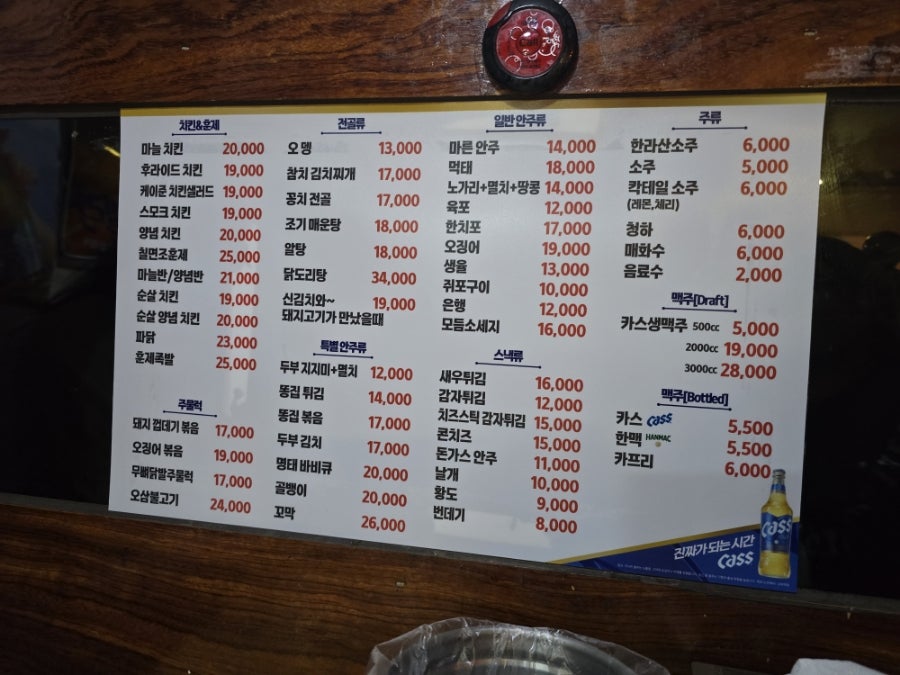 치킨&훈제
마늘 치킨 20,000
후라이드 치킨 19,000
케이준 치킨샐러드 19,000
스모크 치킨 19,000
양념 치킨 20,000
칠면조훈제 25,000
마늘반/양념반 21,000
순살 치킨 19,000
순살 양념 치킨 20,000
파닭 23,000
훈제족발 25,000
주물럭
돼지 껍데기 볶음 17,000
오징어 볶음 19,000
무뼈닭발주물럭 17,000
오삼불고기 24,000
전골류
오 뎅 13,000
참치 김치찌개 17,000
꽁치 전골 17,000
조기 매운탕 18,000
알탕 18,000
닭도리탕 34,000
신김치와~ 19,000
돼지고기가 만났을때
특별 안주류
두부 지지미+멸치 12,000
똥집 튀김 14,000
똥집 볶음 17,000
두부 김치 17,000
명태 바비큐 20,000
골뱅이 20,000
꼬막 26,000
일반 안주류
마른 안주 14,000
먹태 18,000
노가리+멸치+땅콩 14,000
육포 12,000
한치포 17,000
오징어 19,000
생율 13,000
쥐포구이 10,000
은행 12,000
모듬소세지 16,000
스낵류
새우튀김 16,000
감자튀김 12,000
치즈스틱 감자튀김 15,000
콘치즈 15,000
돈가스 안주 11,000
날개 10,000
황도 9,000
번데기 8,000
주류
한라산소주 6,000
소주 5,000
칵테일 소주 6,000
(레몬,체리)
청하 6,000
매화수 6,000
음료수 2,000
맥주[Draft]
카스생맥주 500cc 5,000
2000cc 19,000
3000cc 28,000
맥주[Bottled]
카스 Cass 5,500
한맥 HANMAC 5,500
카프리 6,000
진짜가 되는 시간
Cass
Cass